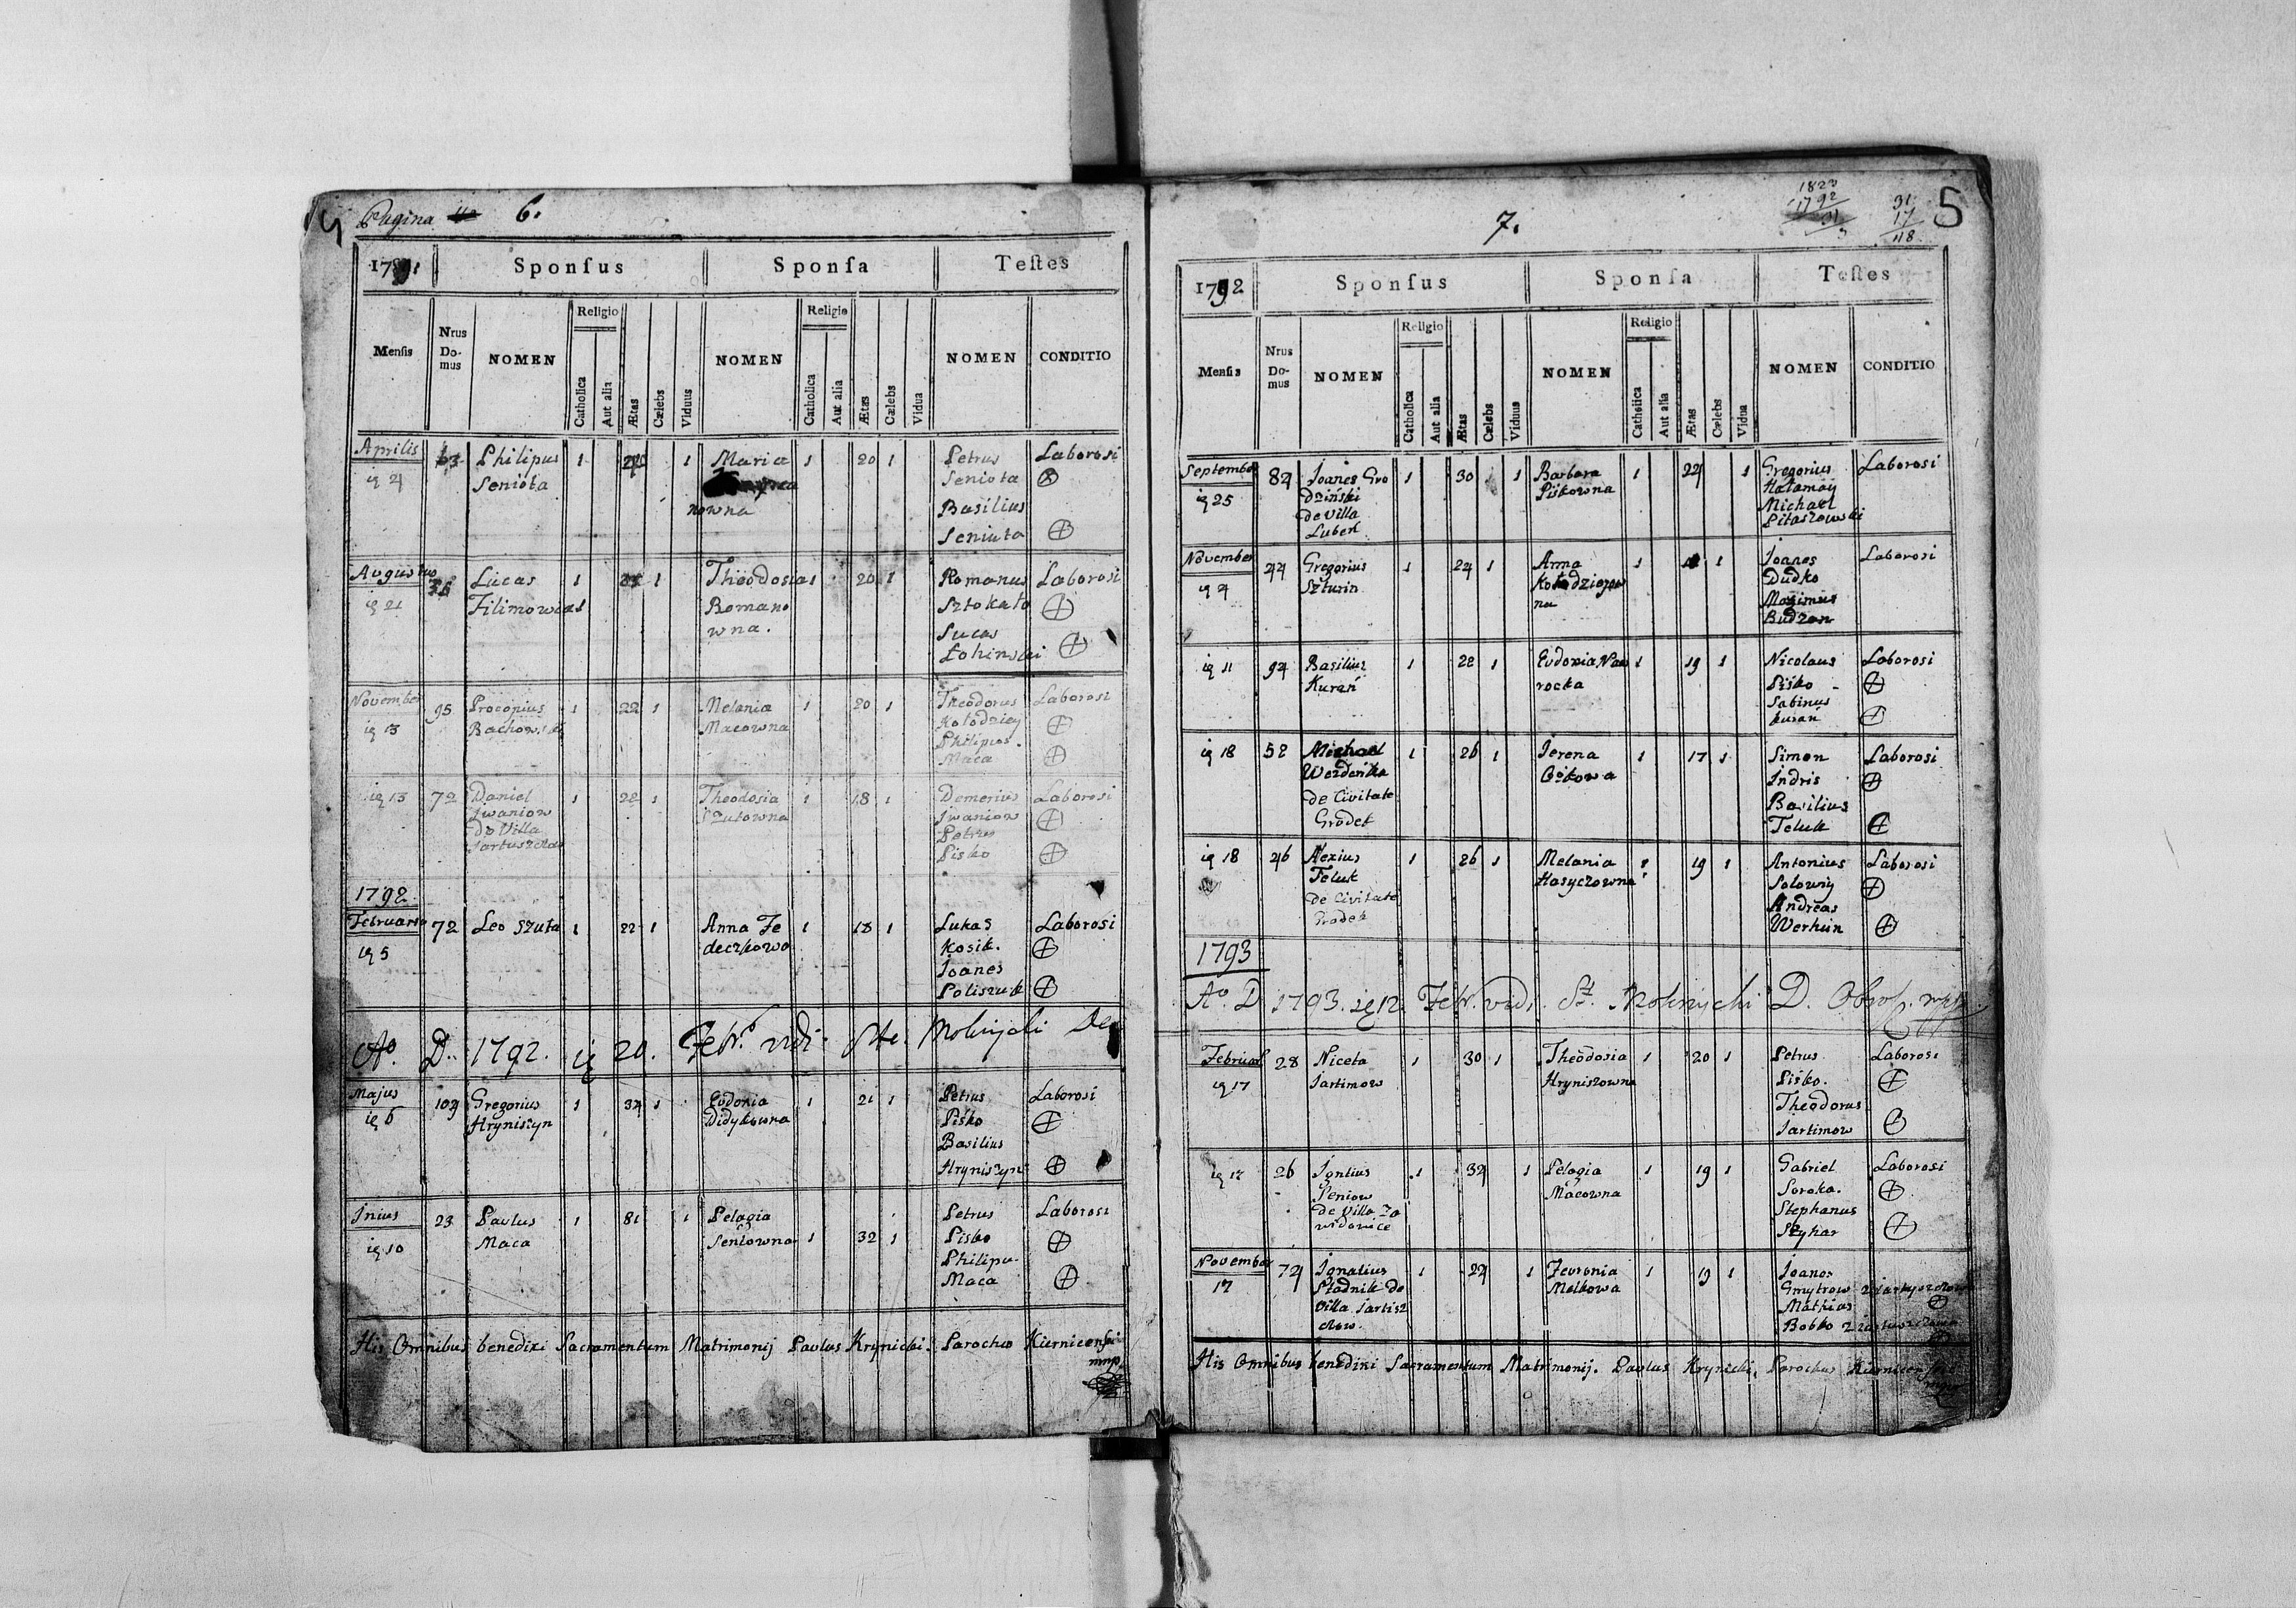 Pagina 6.
1791 Sponſus Sponſa Teſtes
Menſis Nrus Do-mus NOMEN Religio Catholica Aut alia Ætas Cælebs Viduus NOMEN Religio Catholica Aut alia Ætas Cælebs Vidua NOMEN CONDITIO
Aprilis 63 Philipus 1 1 Maria 1 20 1 Petrus Laborosi
ią 4 Seniota Seniota
nowna Basilius
Seniuta
Augustus Lucas 1 1 Theodosia 1 20 1 Romanus Laborosi
ią 21 Filimowicz Romano Sztokało
wna. Lucas
Łohinski
November 95 Procopius 1 22 1 Melania 1 20 1 Theodorus Laborosi
ią 13 Bachowski Macowna Kołodziey
Philipus
Maca
ią 13 72 Daniel 1 22 1 Theodosia 1 18 1 Demerius Laborosi
Jwaniow Szutowna Jwaniow
de Villa Petrus
Pisko
1792
Februario 72 Leo Szuta 1 22 1 Anna Fe 1 18 1 Lukas Laborosi
ią 5 deczkowa Kosik.
Joanes
Poliszuk
Ao. D. 1792. ią 20. Febr. vidi
Majus 104 Gregorius 1 34 1 Eudoxia 1 21 1 Petrus Laborosi
ią 6 Hryniszyn Didykowna Pisko
Basilius
Hryniszyn
Junius 23 Paulus 1 81 1 Pelagia Petrus Laborosi
ią 10 Maca Senłowna 1 32 1 Pisko
Philipu
Maca
His Omnibus benedixi Sacramentum Matrimonij Paulus Krynicki. Parochus Kiernicensis
mnp.
7.
1823
1792
31
31
17
48
5
1792 Sponſus Sponſa Teſtes
Menſis Nrus Do-mus NOMEN Religio Catholica Aut alia Ætas Cælebs Viduus NOMEN Religio Catholica Aut alia Ætas Cælebs Vidua NOMEN CONDITIO
September 84 Joanes Gro 1 30 1 Barbara 1 24 1 Gregorius Laborosi
ią 25 dziński Piskowna Hałamay
de Villa Michael
Lubeń Pitaszowski
November 44 Gregorius 1 24 1 Anna 1 1 Joanes Laborosi
ią 4 Szturin Kołodzieyow Dudko
na Maximus
Budzan
ią 11 94 Basilius 1 22 1 Eudoxia Naw 1 19 1 Nicolaus Laborosi
Kurań rocka Pisko
Sabinus
Kurań
ią 18 52 Michael 1 26 1 Jerena 1 17 1 Simon Laborosi
Indris
de Civitate Basilius
Grodek Teluk
ią 18 46 Alexius 1 26 1 Melania 1 19 1 Antonius Laborosi
Teluk Hasyczowna Solowiy
de Civitate Andreas
Grodek Werhun
1793
Ao. D. 1793. ią 12. Febr. vidi.
Februar 28 Niceta 1 30 1 Theodosia 1 20 1 Petrus Laborosi
ią 17 Jartimow Hryniszowna Pisko.
Theodorus
Jartimow
ią 17 26 1 34 1 Pelagia 1 19 1 Gabriel Laborosi
Seniow Macowna Soroka.
de Villa Za Stephanus
widowice Szykar
November 74 Ignatius 1 24 1 Fevronia 1 19 1 Joanes
17 Stadnik de Melkowa Gmytrow
Villa Jartisz Mathias
czow. Bobko
His Omnibus benedixi Sacramentum Matrimonij. Paulus Krynicki. Parochus Kiernicensis